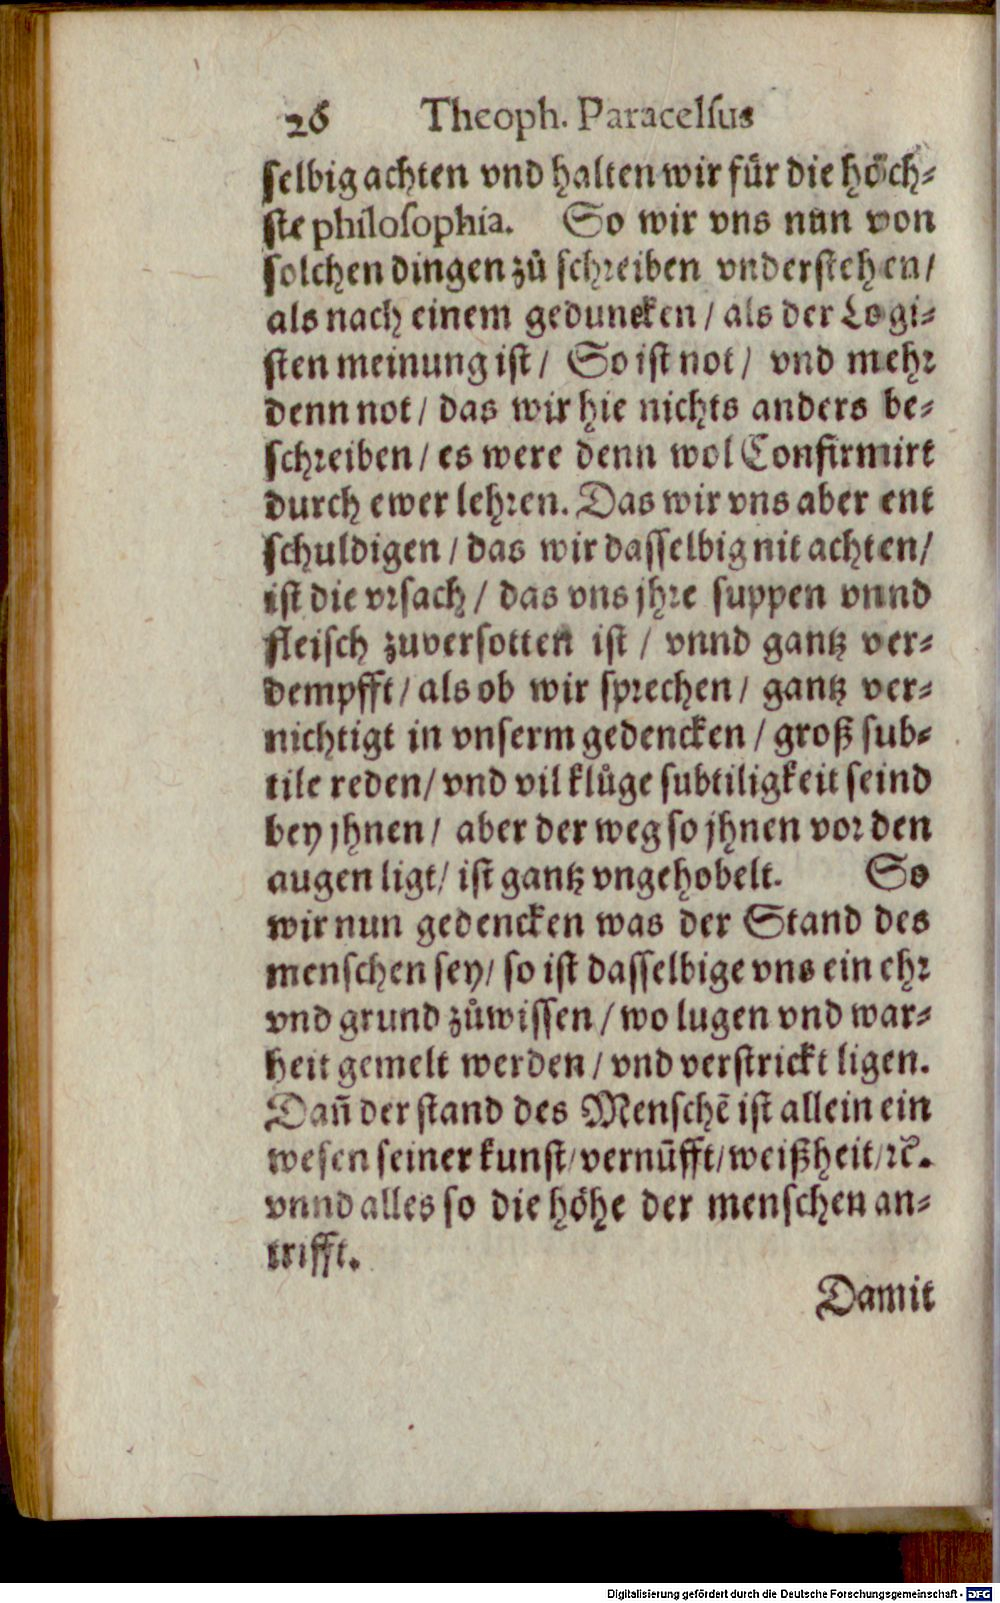 26 Theoph. Paracelſus
ſelbig achten vnd halten wir fuͤr die hoͤch⸗
ſte philoſophia. So wir vns nun von
ſolchen dingen zuͦ ſchreiben vnderſtehen/
als nach einem geduncken / als der Logi⸗
ſten meinung iſt/ So iſt not/ vnd mehr
denn not/ das wir hie nichts anders be⸗
ſchreiben/ es were denn wol Confirmirt
durch ewer lehren. Das wir vns aber ent
ſchuldigen / das wir daſſelbig nit achten/
iſt die vrſach / das vns jhre ſuppen vnnd
fleiſch zuverſotten iſt / vnnd gantz ver⸗
dempfft/ als ob wir ſprechen/ gantz ver⸗
nichtigt in vnſerm gedencken / groß ſub⸗
tile reden/ vnd vil kluͦge ſubtiligkeit ſeind
bey jhnen/ aber der weg ſo jhnen vor den
augen ligt/ iſt gantz vngehobelt. So
wir nun gedencken was der Stand des
menſchen ſey/ ſo iſt daſſelbige vns ein ehr
vnd grund zuͦwiſſen / wo lugen vnd war⸗
heit gemelt werden / vnd verſtrickt ligen.
Dañ der ſtand des Menſchẽ iſt allein ein
weſen ſeiner kunſt/ vernũfft/ weißheit/ ꝛc̃.
vnnd alles ſo die hoͤhe der menſchen an⸗
trifft.
Damit
Digitalisierung gefördert durch die Deutsche Forschungsgemeinschaft - DFG